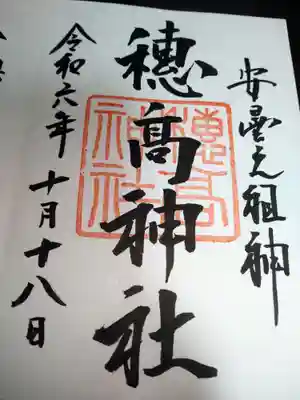 安曇之祖神
穂髙神社
穂高神社
令和六年 十月十八日